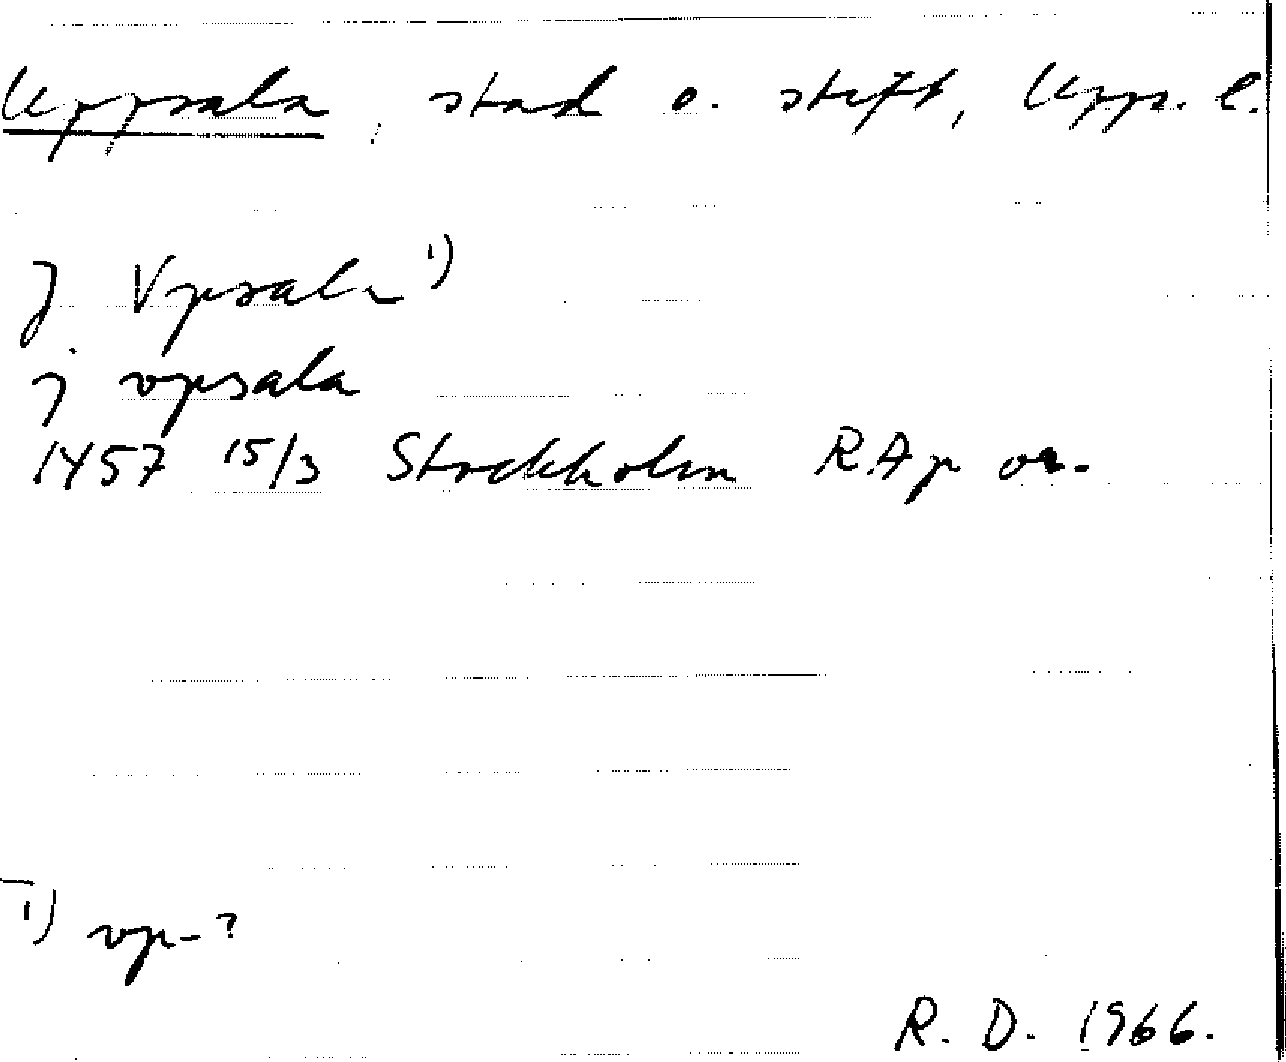 Uppsala, stad o. stift, Upps. l.
J Vpsala 1)
j vpsala
1457 15/3 Stockholm RAp or.
1) vp-?
R. D. 1966.